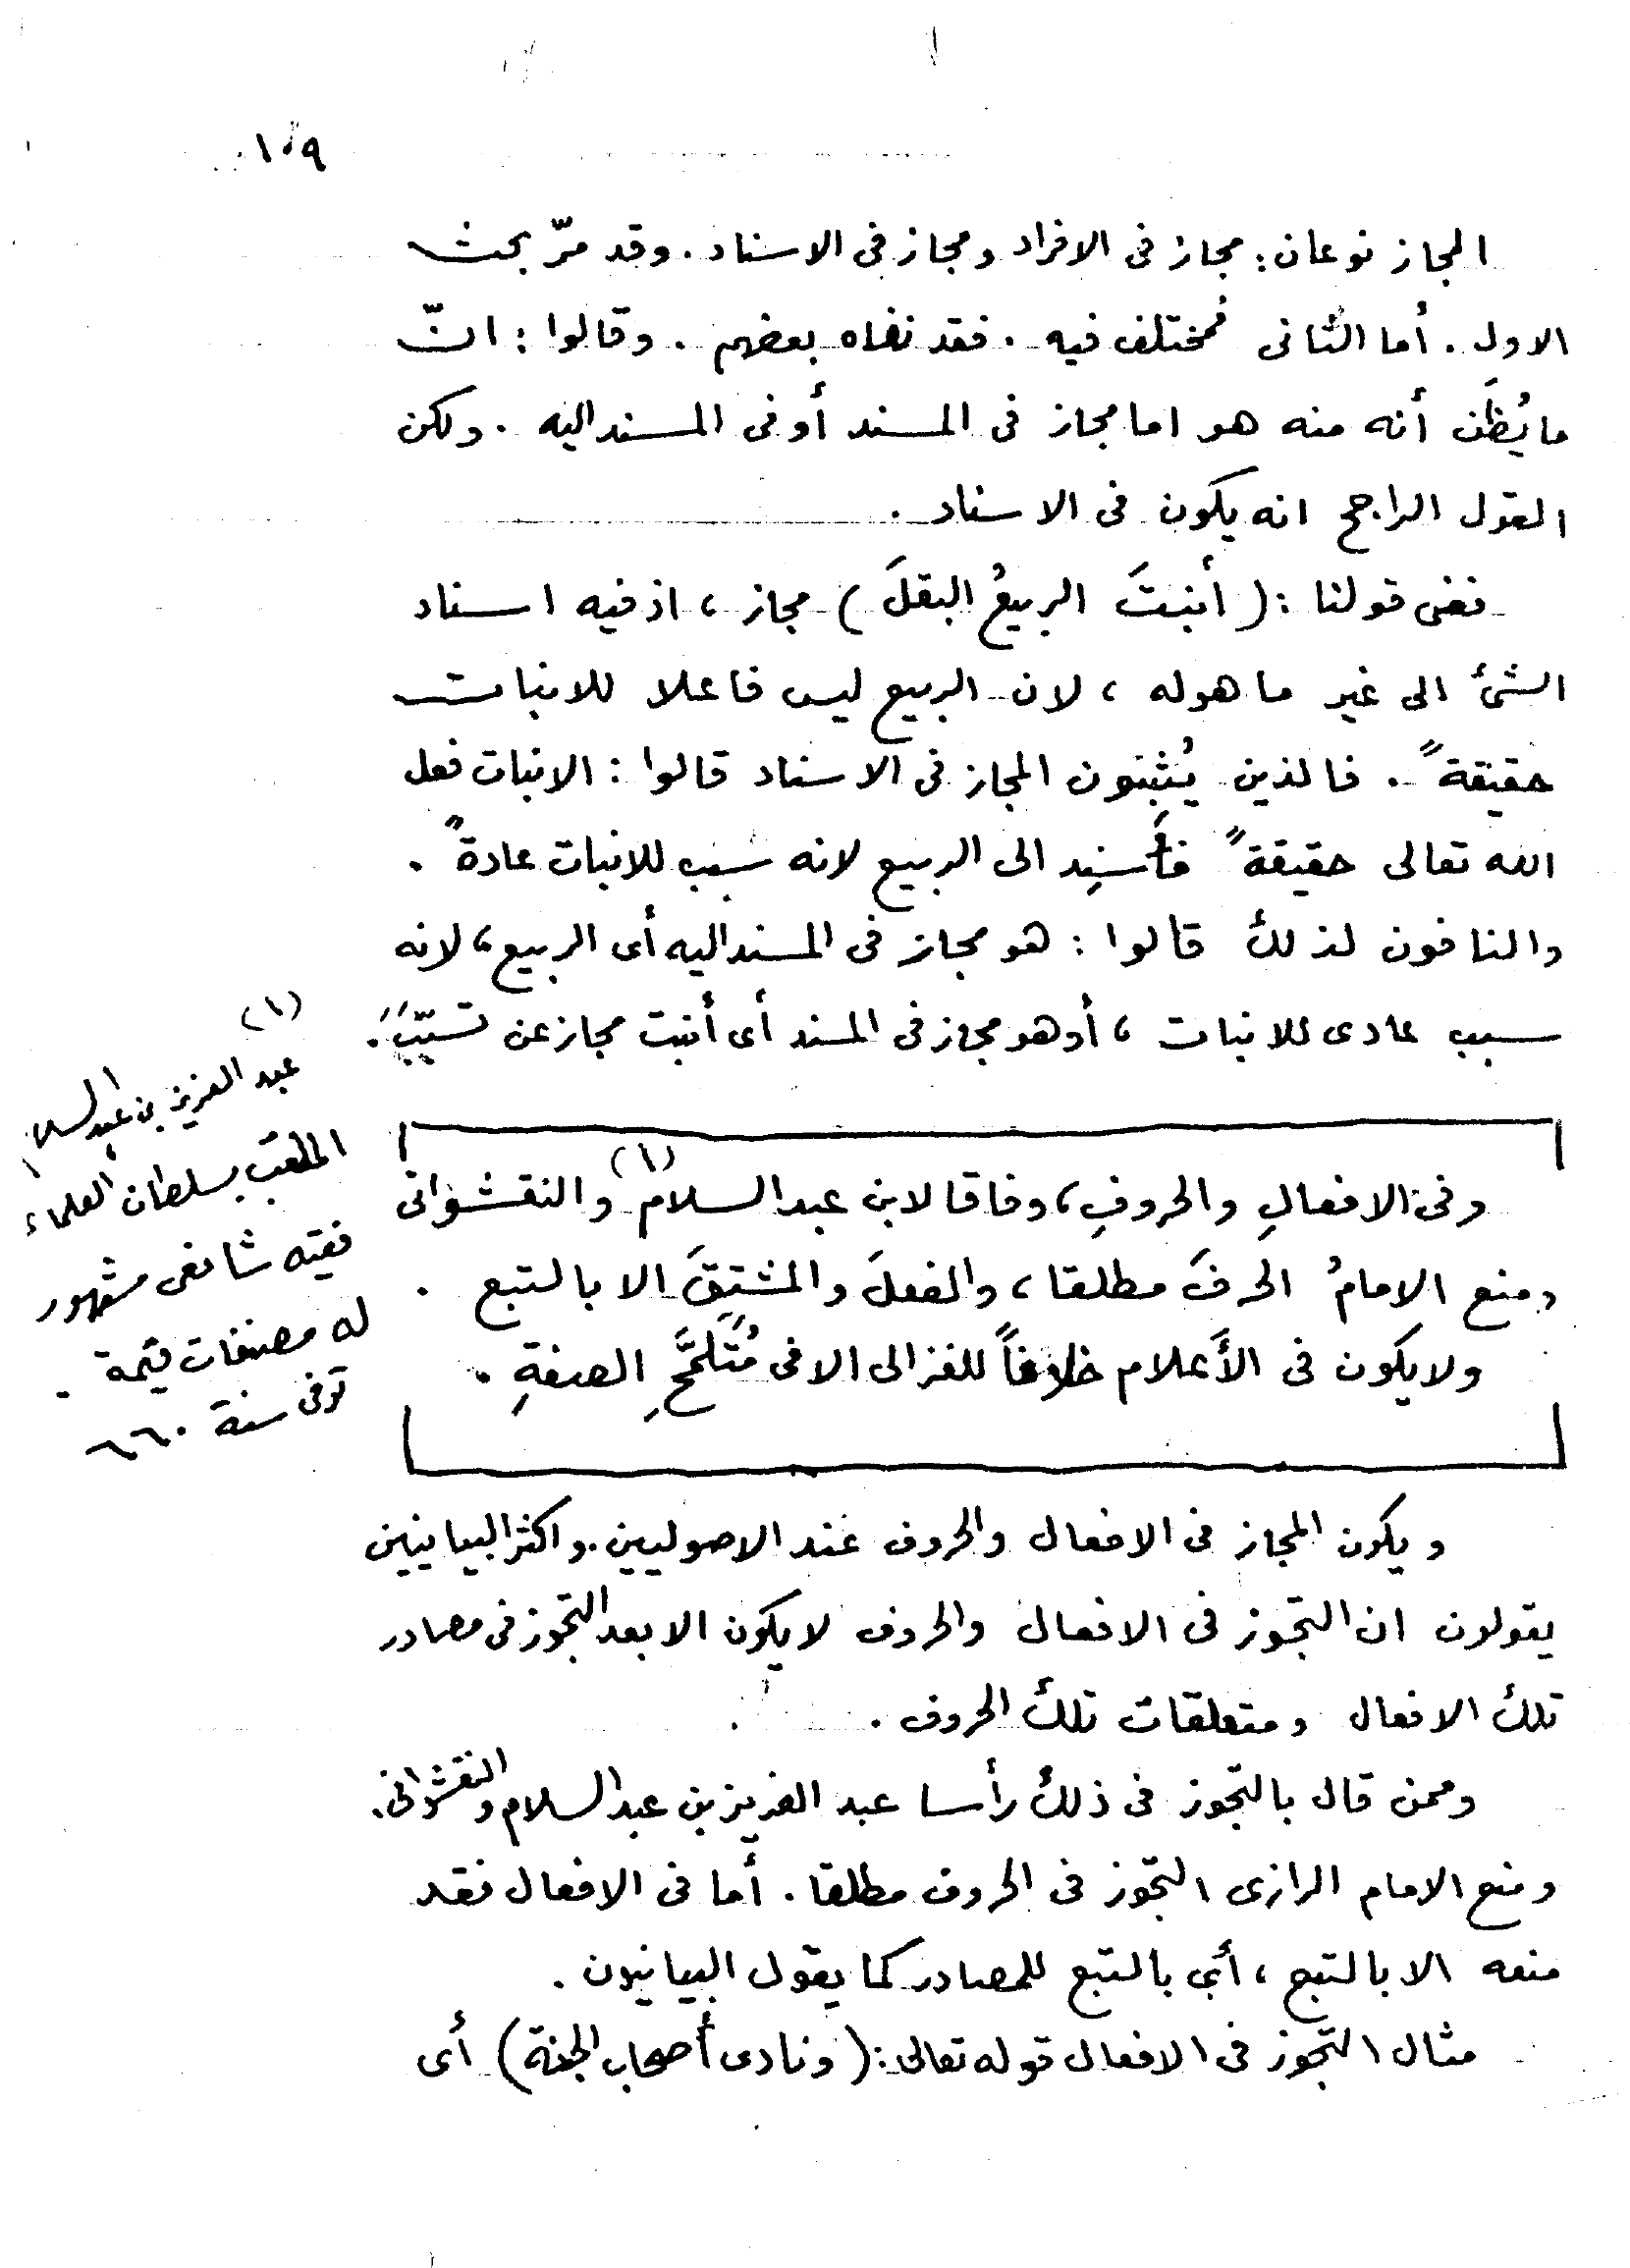 ١٠٩
المجاز نوعان: مجاز فى الافراد ومجاز فى الاسناد. وقد مرّ بحث
الاول. أما الثانى فمختلف فيه. فقد نفاه بعضهم. وقالوا: انّ
ما يُظَن أنه منه هو اما مجاز فى المسند أو فى المسند اليه. ولكن
القول الراجح انه يكون فى الاسناد.
ففى قولنا: (أنبتَ الربيعُ البقلَ) مجاز، اذ فيه اسناد
الشئ الى غير ما هو له، لان الربيع ليس فاعلا للانبات
حقيقةً. فالذين يُثبِتون المجاز فى الاسناد قالوا: الانبات فعل
الله تعالى حقيقةً فأُسنِد الى الربيع لانه سبب للانبات عادةً.
والنافون لذلك قالوا: هو مجاز فى المسند اليه أى الربيع، لانه
سبب عادى للانبات، أو هو مجاز فى المسند أى أنبت مجاز عن تسبّبَ.
وفى الافعالِ والحروفِ، وفاقا لابن عبد السلام (١) والنقشوانى
ومنع الامامُ الحرفَ مطلقا، والفعلَ والمشتقَ الا بالتبع.
ولا يكون فى الأَعلام خلافاً للغزالى الا فى مُتَلمَّحِ الصفةِ.
ويكون المجاز فى الافعال والحروف عند الاصوليين. واكثر البيانيين
يقولون ان التجوز فى الافعال والحروف لا يكون الا بعد التجوز فى مصادر
تلك الافعال ومتعلقات تلك الحروف.
وممن قال بالتجوز فى ذلك رأسا عبد العزيز بن عبد السلام والنقشوانى.
ومنع الامام الرازى التجوّز فى الحروف مطلقا. أما فى الافعال فقد
منعه الا بالتبع، أي بالتبع للمصادر كما يقول البيانيون.
مثال التجوز فى الافعال قوله تعالى: (ونادى أصحاب الجنة) أى
(١)
عبد العزيز بن عبد السلام
الملقب بسلطان العلماء
فقيه شافعى مشهور
له مصنفات قيمة.
توفى سنة ٦٦٠